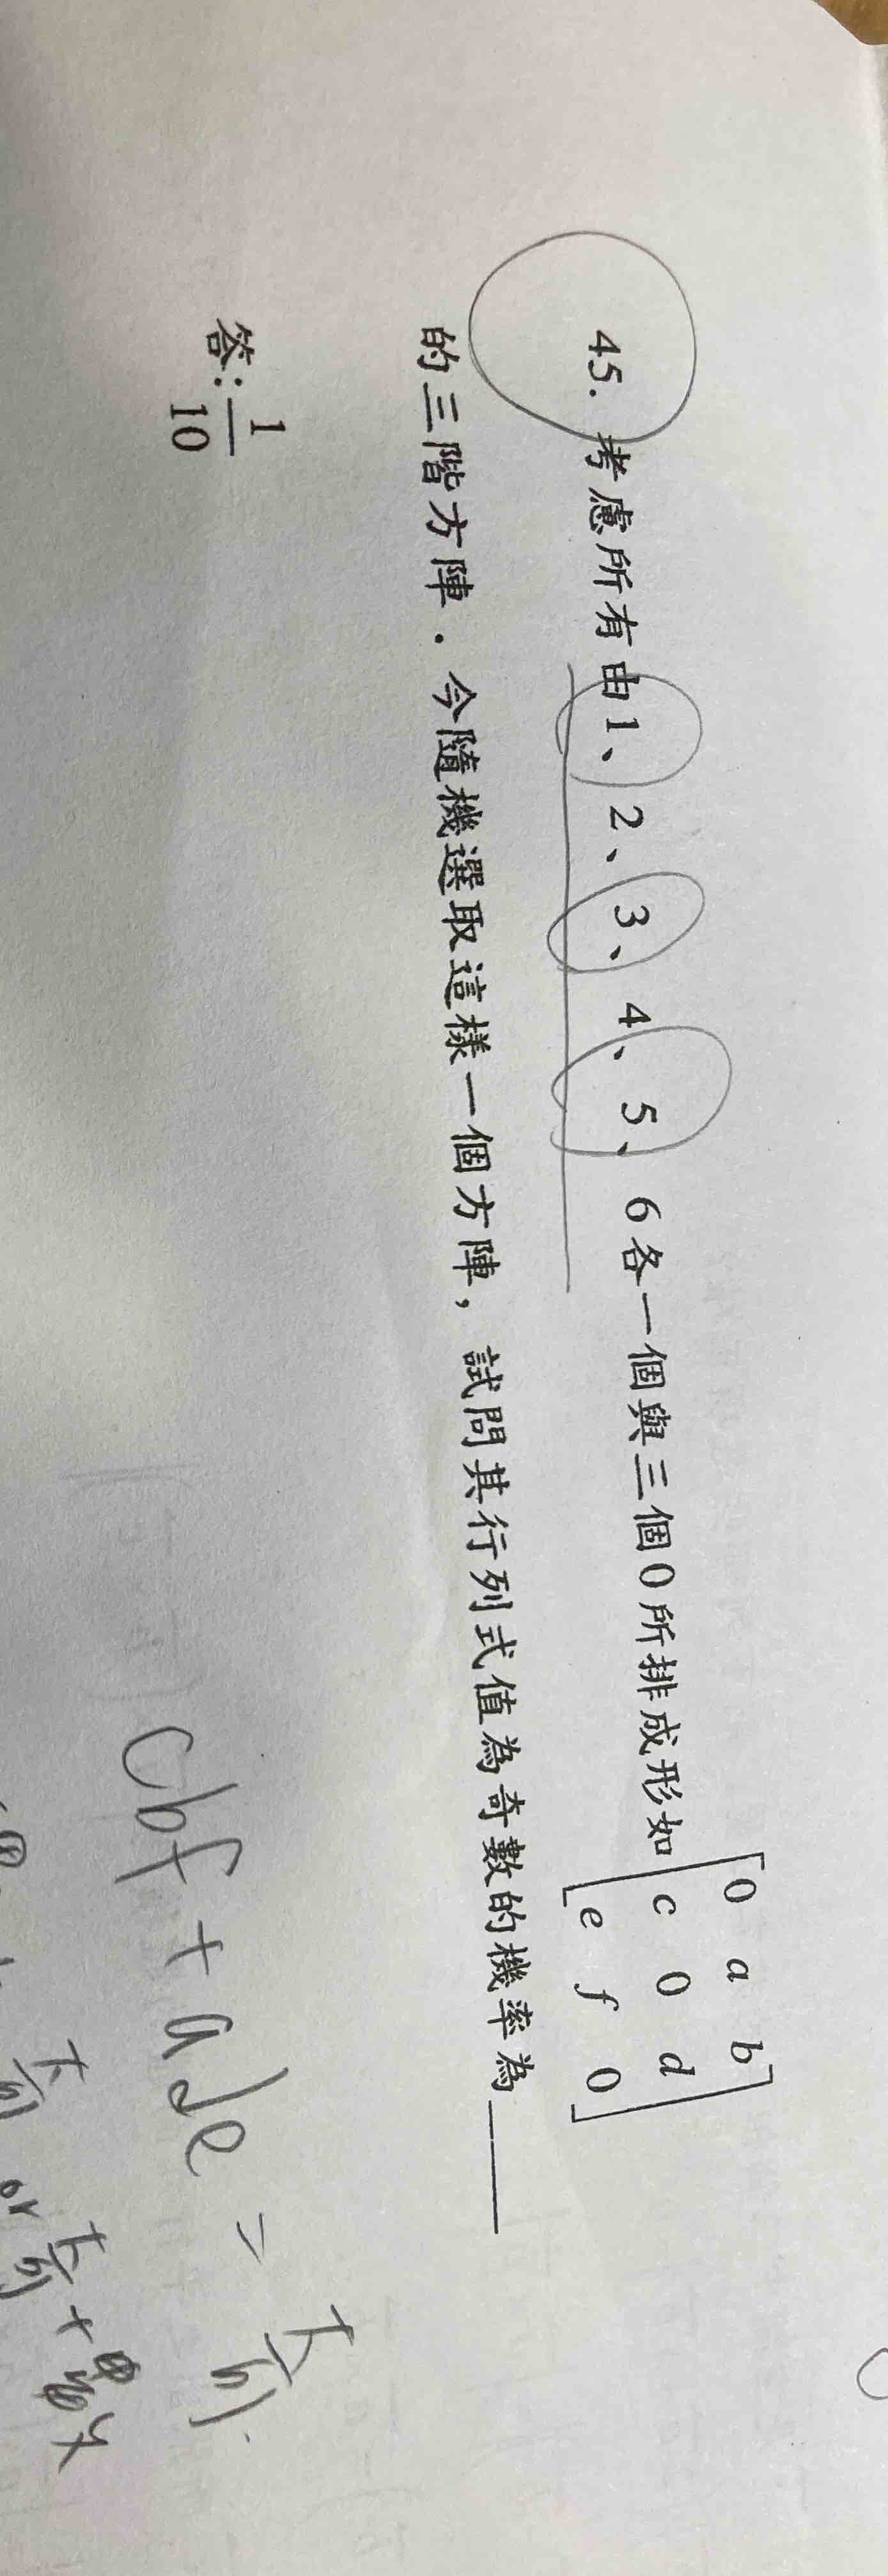 45. 考慮所有由1、2、3、4、5、6各一個與三個0所排成形如 [0 a b
c 0 d
e f 0]
的三階方陣．今隨機選取這樣一個方陣，試問其行列式值為奇數的機率為______
答：1/10
cbf + ade = 奇
奇 or 奇+偶